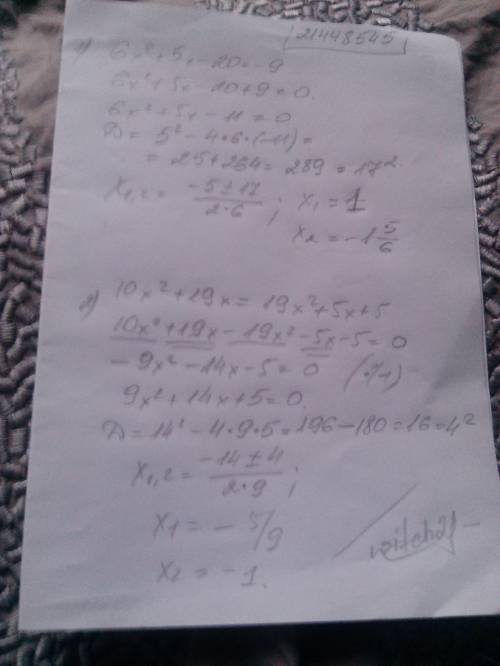 21448545
1) 6x²+5x-20=-9
6x²+5x-20+9=0
6x²+5x-11=0
D=5²-4·6·(-11)=
=25+264=289=17².
x₁,₂=(-5±17)/(2·6); x₁=1
x₂=-1 5/6
2) 10x²+19x=19x²+5x+5
10x²+19x-19x²-5x-5=0
-9x²-14x-5=0
9x²+14x+5=0.
D=14²-4·9·5=196-180=16=4²
x₁,₂=(-14±4)/(2·9);
x₁=-5/9
x₂=-1.